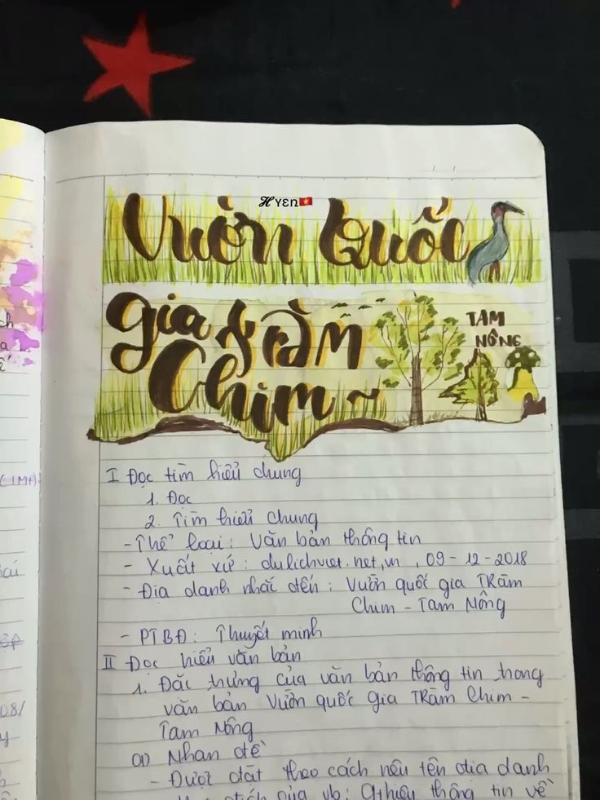 Hyen🇻🇳
Vườn Quốc
gia Tràm
Chim ~
TAM
NÔNG
I Đọc tìm hiểu chung
1. Đọc
2. Tìm hiểu chung
- Thể loại: Văn bản thông tin
- Xuất xứ: dulichviet.net.vn, 09-12-2018
- Địa danh nhắc đến: Vườn quốc gia Tràm
Chim - Tam Nông
- PTBĐ: Thuyết minh
II Đọc hiểu văn bản
1. Đặc trưng của văn bản thông tin trong
văn bản Vườn quốc gia Tràm Chim -
Tam Nông
a) Nhan đề
- Được đặt theo cách nêu tên địa danh
đích của vb: Gthiệu thông tin về